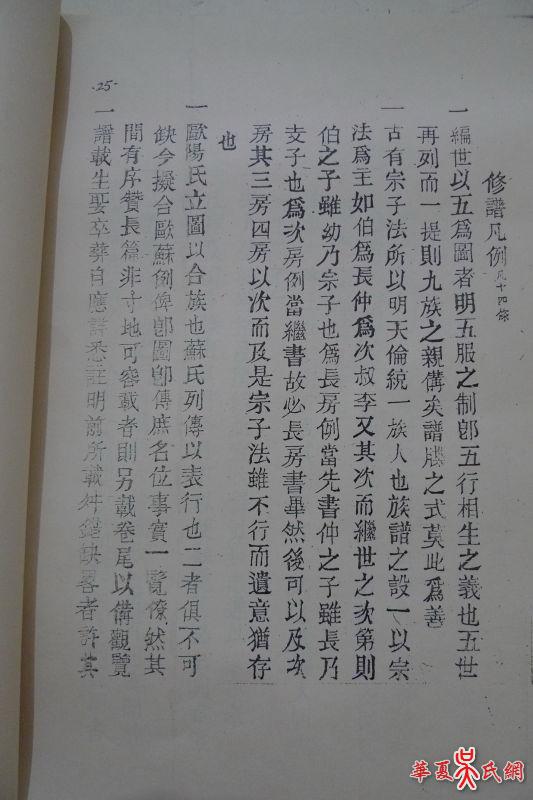 修譜凡例凡十四條
一編世以五爲圖者明五服之制卽五行相生之義也五世
再列而一提則九族之親備矣譜牒之式莫此爲善
一古有宗子法所以明天倫統一族人也族譜之設一以宗
法爲主如伯爲長仲爲次叔季又其次而繼世之次第則
伯之子雖幼乃宗子也爲長房例當先書仲之子雖長乃
支子也爲次房例當繼書故必長房書畢然後可以及次
房其三房四房以次而及是宗子法雖不行而遺意猶存
也
一歐陽氏立圖以合族也蘇氏列傳以表行也二者俱不可
缺今擬合歐蘇例俾卽圖卽傳庶名位事實一覽僚然其
間有序贊長篇非寸地可容載者則另載卷尾以備觀覽
一譜載生娶卒葬自應詳悉註明前所載舛錯缺畧者許其
·25·
華夏吳氏網